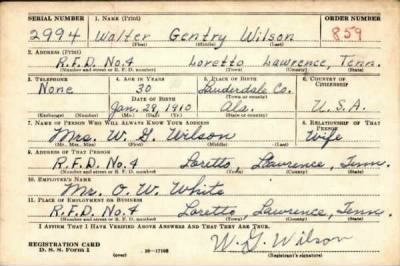 SERIAL NUMBER 1. NAME (Print) ORDER NUMBER
2994 Walter Gentry Wilson 859
(First) (Middle) (Last)
2. ADDRESS (Print)
R.F.D. No.4 Loretto Lawrence, Tenn.
(Number and street or R. F. D. number) (Town) (County) (State)
3. TELEPHONE 4. AGE IN YEARS 5. PLACE OF BIRTH 6. COUNTRY OF CITIZENSHIP
None 30 Lauderdale Co.
DATE OF BIRTH (Town or county)
Jan. 29, 1910 Ala. U.S.A.
(Exchange) (Number) (Mo.) (Day) (Yr.) (State or country)
7. NAME OF PERSON WHO WILL ALWAYS KNOW YOUR ADDRESS 8. RELATIONSHIP OF THAT PERSON
Mrs. W. G. Wilson Wife
(Mr., Mrs., Miss) (First) (Middle) (Last)
9. ADDRESS OF THAT PERSON
R.F.D. No.4 Loretto, Lawrence, Tenn.
(Number and street or R. F. D. number) (Town) (County) (State)
10. EMPLOYER'S NAME
Mr. O. W. White
11. PLACE OF EMPLOYMENT OR BUSINESS
R.F.D. No.4 Loretto, Lawrence, Tenn.
(Number and street or R. F. D. number) (Town) (County) (State)
I AFFIRM THAT I HAVE VERIFIED ABOVE ANSWERS AND THAT THEY ARE TRUE.
REGISTRATION CARD W. G. Wilson
D. S. S. Form 1 16-17105 (Registrant's signature)